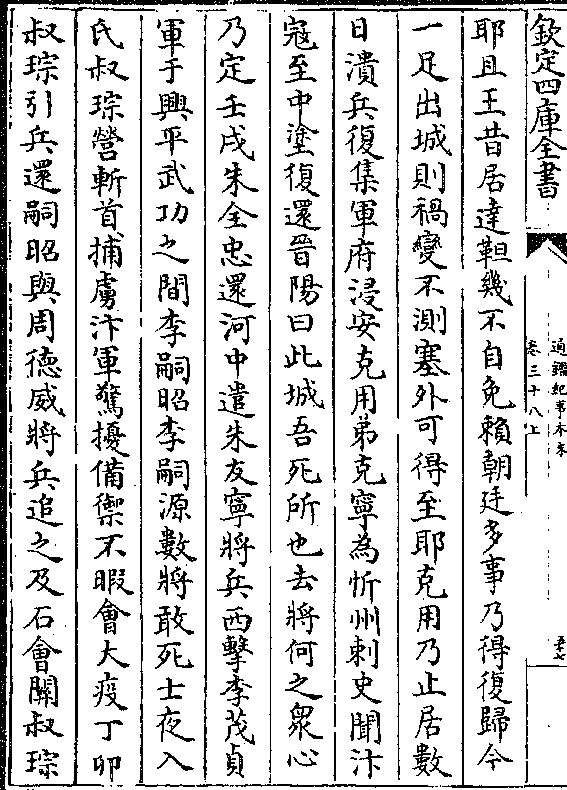 欽定四庫全書
通鑑紀事本末
卷三十八上
耶且王昔居達靼幾不自免賴朝廷多事乃得復歸今
一足出城則禍變不測塞外可得至耶克用乃止居數
日潰兵復集軍府浸安克用弟克寧為忻州刺史聞汴
寇至中塗復還晉陽曰此城吾死所也去將何之衆心
乃定壬戌朱全忠還河中遣朱友寧將兵西擊李茂貞
軍于興平武功之間李嗣昭李嗣源數將敢死士夜入
氏叔琮營斬首捕虜汴軍驚擾備禦不暇會大疫丁卯
叔琮引兵還嗣昭與周德威將兵追之及石會關叔琮